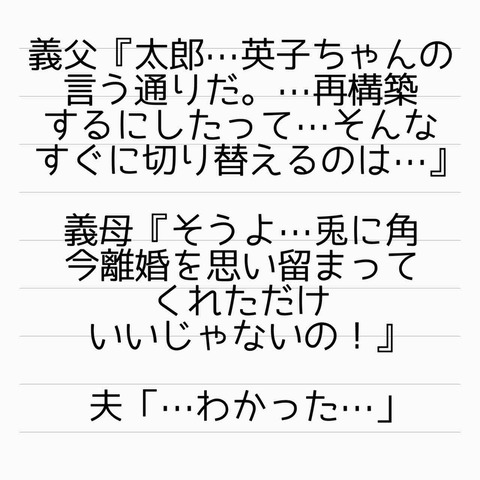 義父『太郎…英子ちゃんの
言う通りだ。…再構築
するにしたって…そんな
すぐに切り替えるのは…』
義母『そうよ…兎に角
今離婚を思い留まって
くれただけ
いいじゃないの！』
夫「…わかった…」